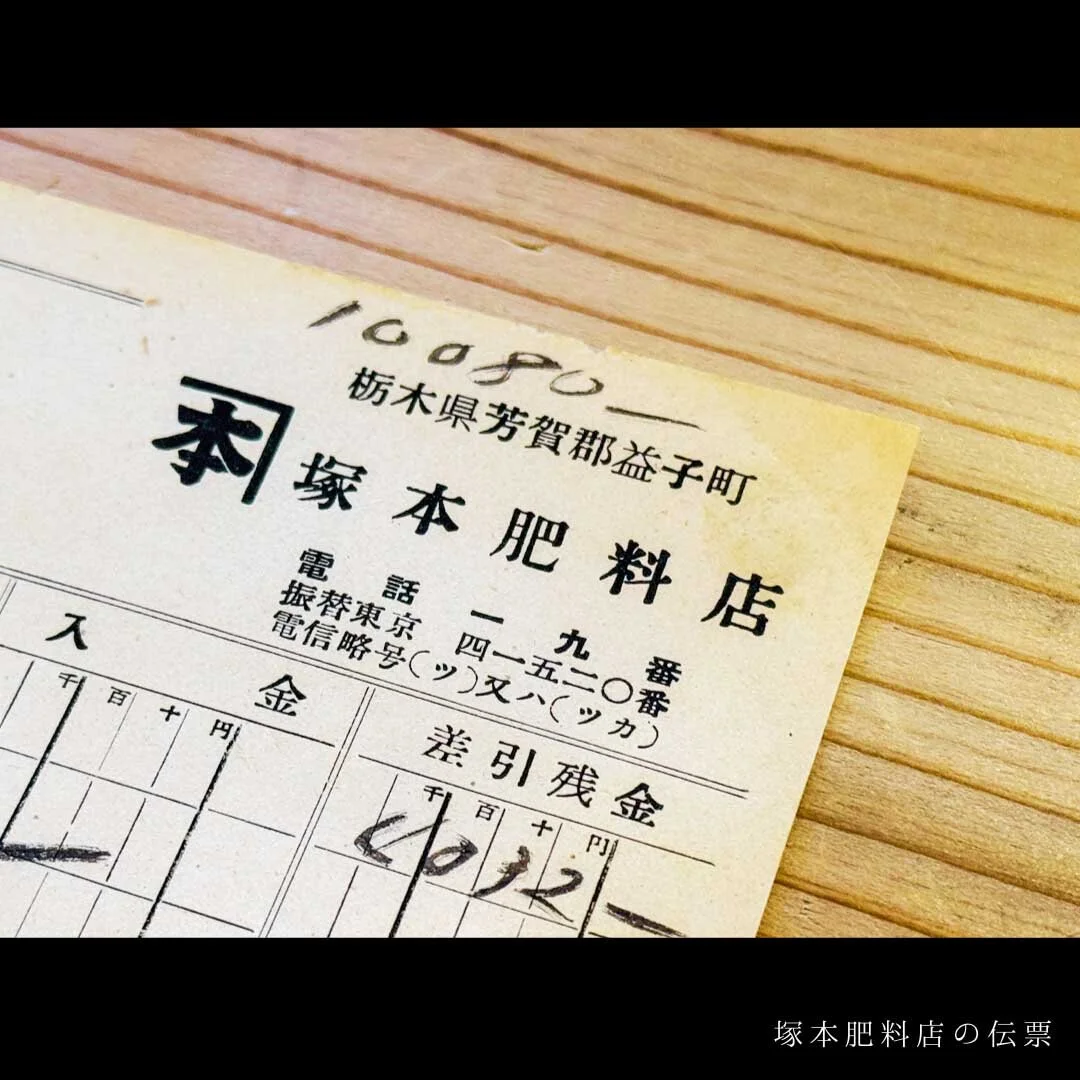 10080—
栃木県芳賀郡益子町
本 塚本肥料店
電話一九番
振替東京四一五二〇番
電信略号(ツ)又ハ(ツカ)
入金
千百十円
差引残金
千百十円
4032—
塚本肥料店の伝票